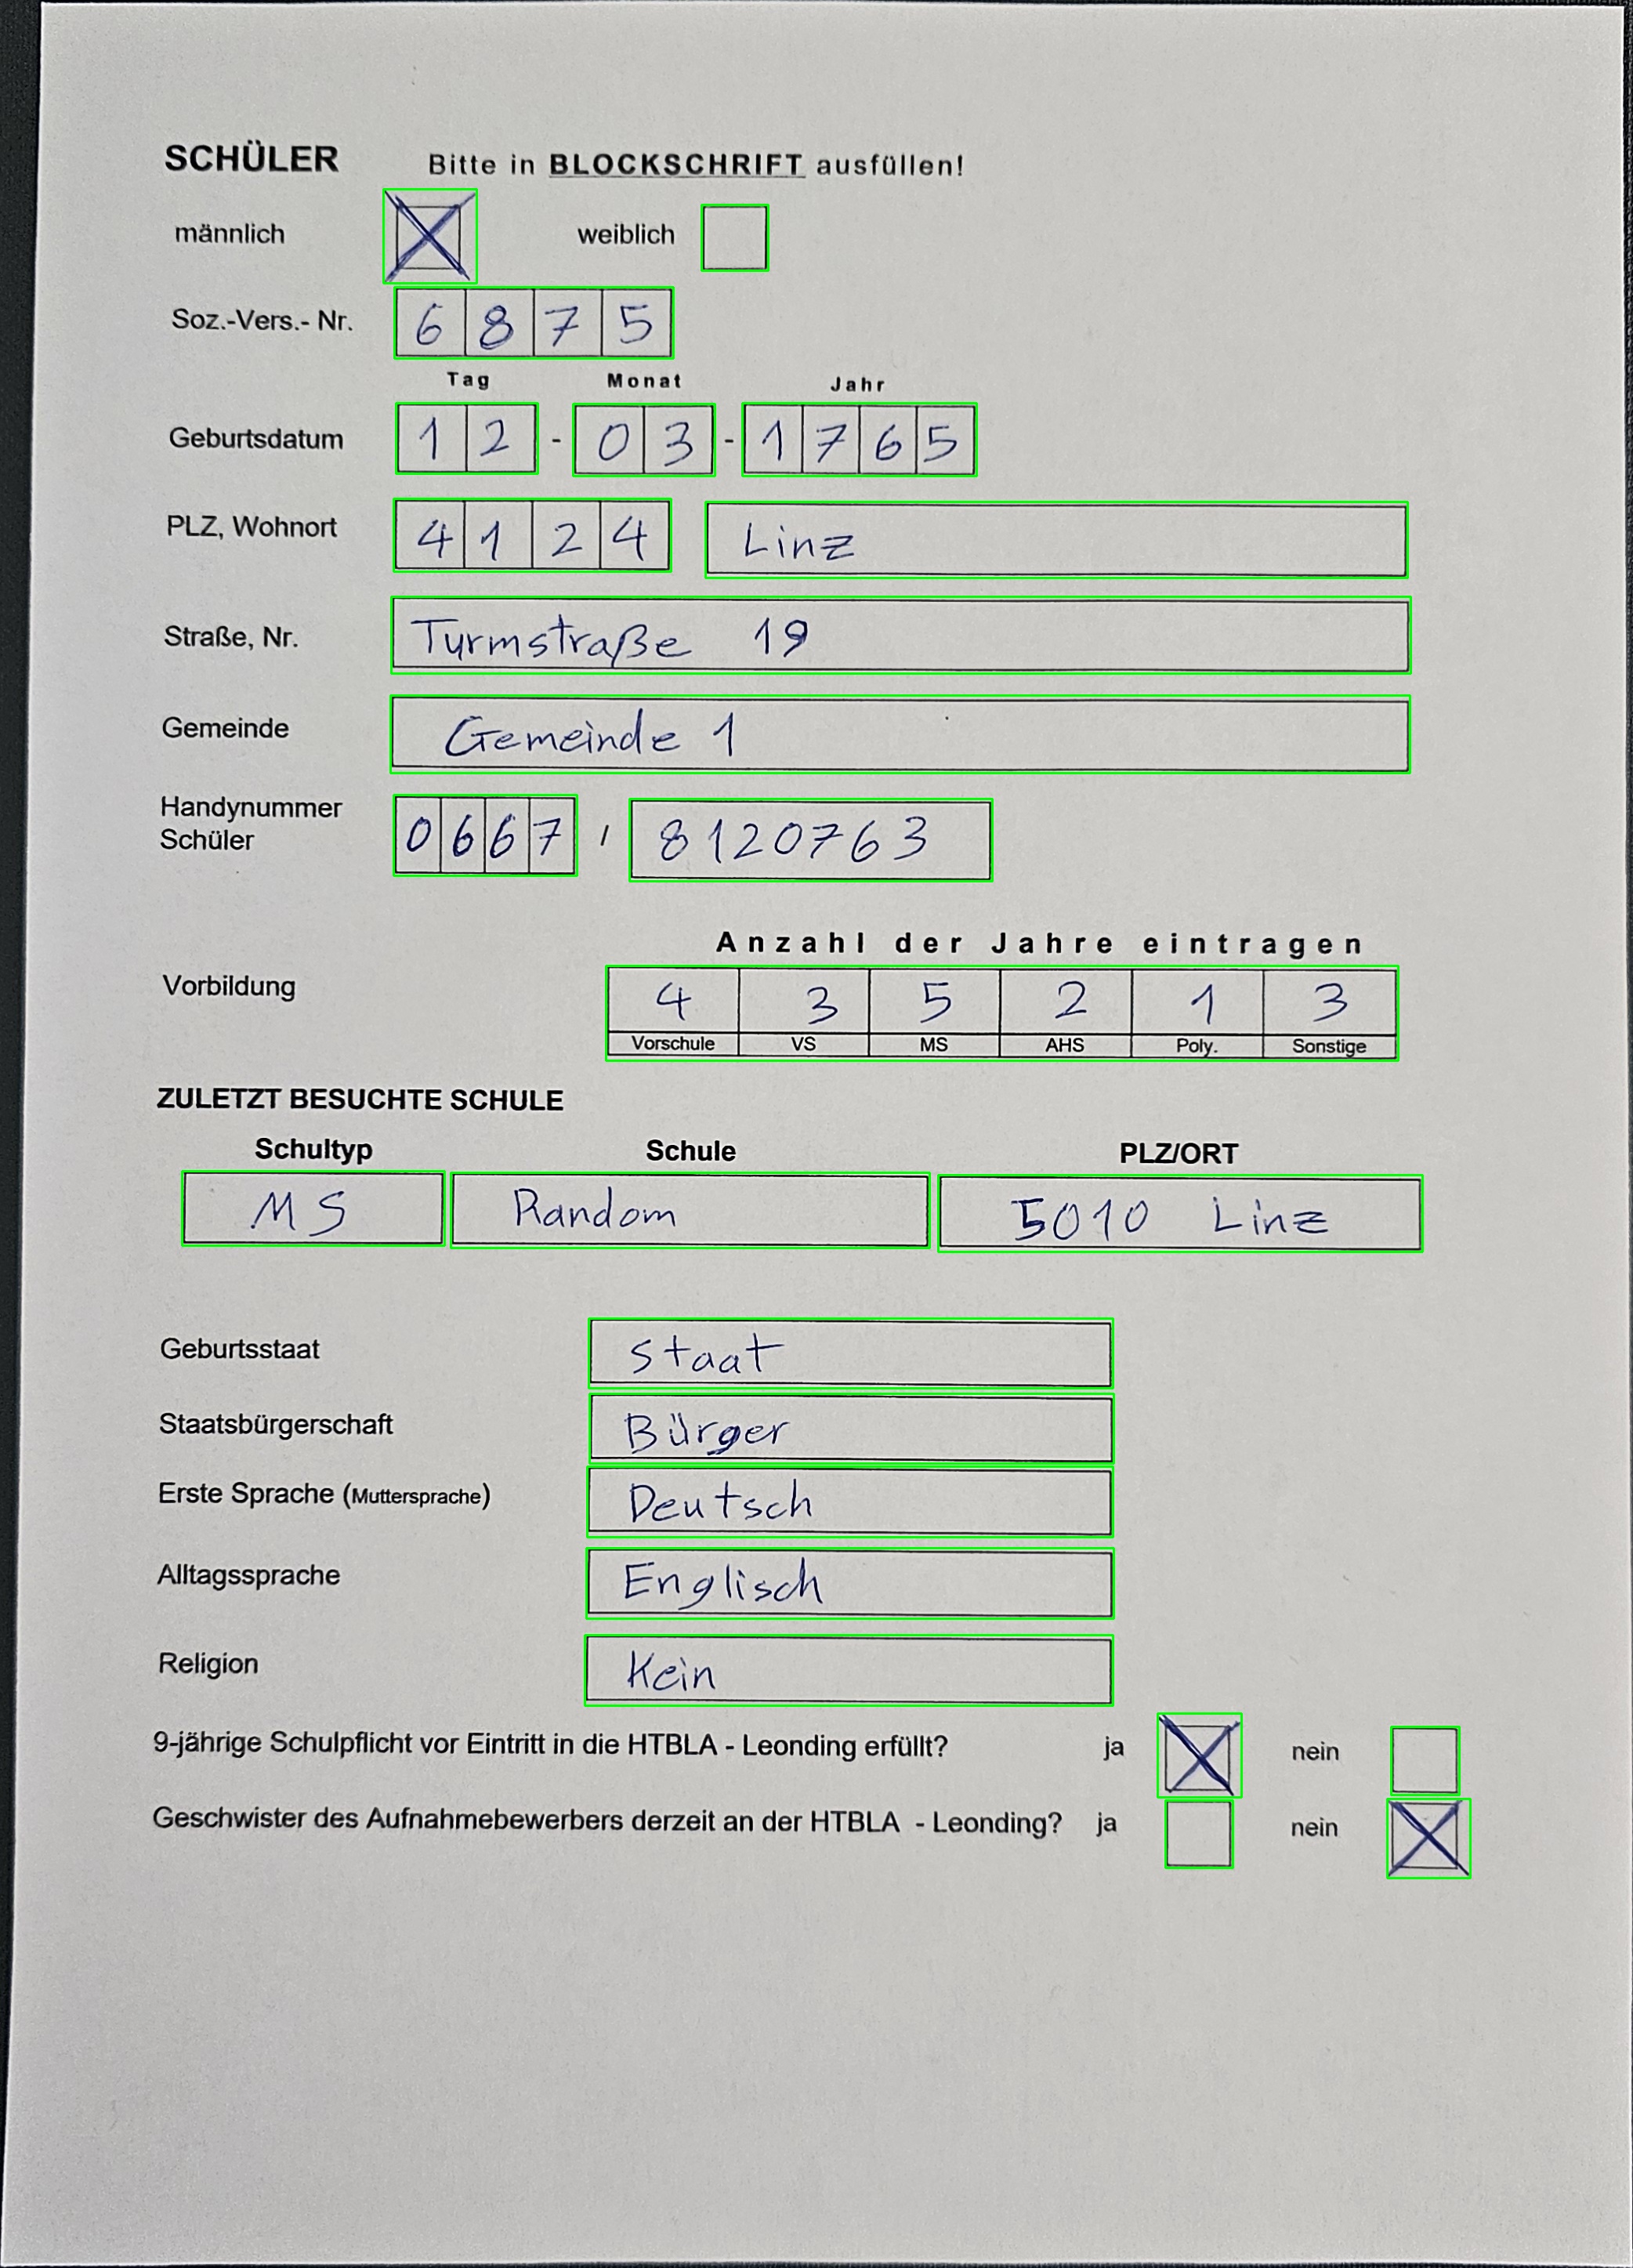 SCHÜLER Bitte in BLOCKSCHRIFT ausfüllen!
männlich weiblich
Soz.-Vers.- Nr. 6 8 7 5
Tag Monat Jahr
Geburtsdatum 1 2 - 0 3 - 1 7 6 5
PLZ, Wohnort 4 1 2 4 Linz
Straße, Nr. Turmstraße 19
Gemeinde Gemeinde 1
Handynummer
Schüler 0 6 6 7 / 8120763
Anzahl der Jahre eintragen
Vorbildung 4 3 5 2 1 3
Vorschule VS MS AHS Poly. Sonstige
ZULETZT BESUCHTE SCHULE
Schultyp Schule PLZ/ORT
MS Random 5010 Linz
Geburtsstaat Staat
Staatsbürgerschaft Bürger
Erste Sprache (Muttersprache) Deutsch
Alltagssprache Englisch
Religion Kein
9-jährige Schulpflicht vor Eintritt in die HTBLA - Leonding erfüllt? ja nein
Geschwister des Aufnahmebewerbers derzeit an der HTBLA - Leonding? ja nein